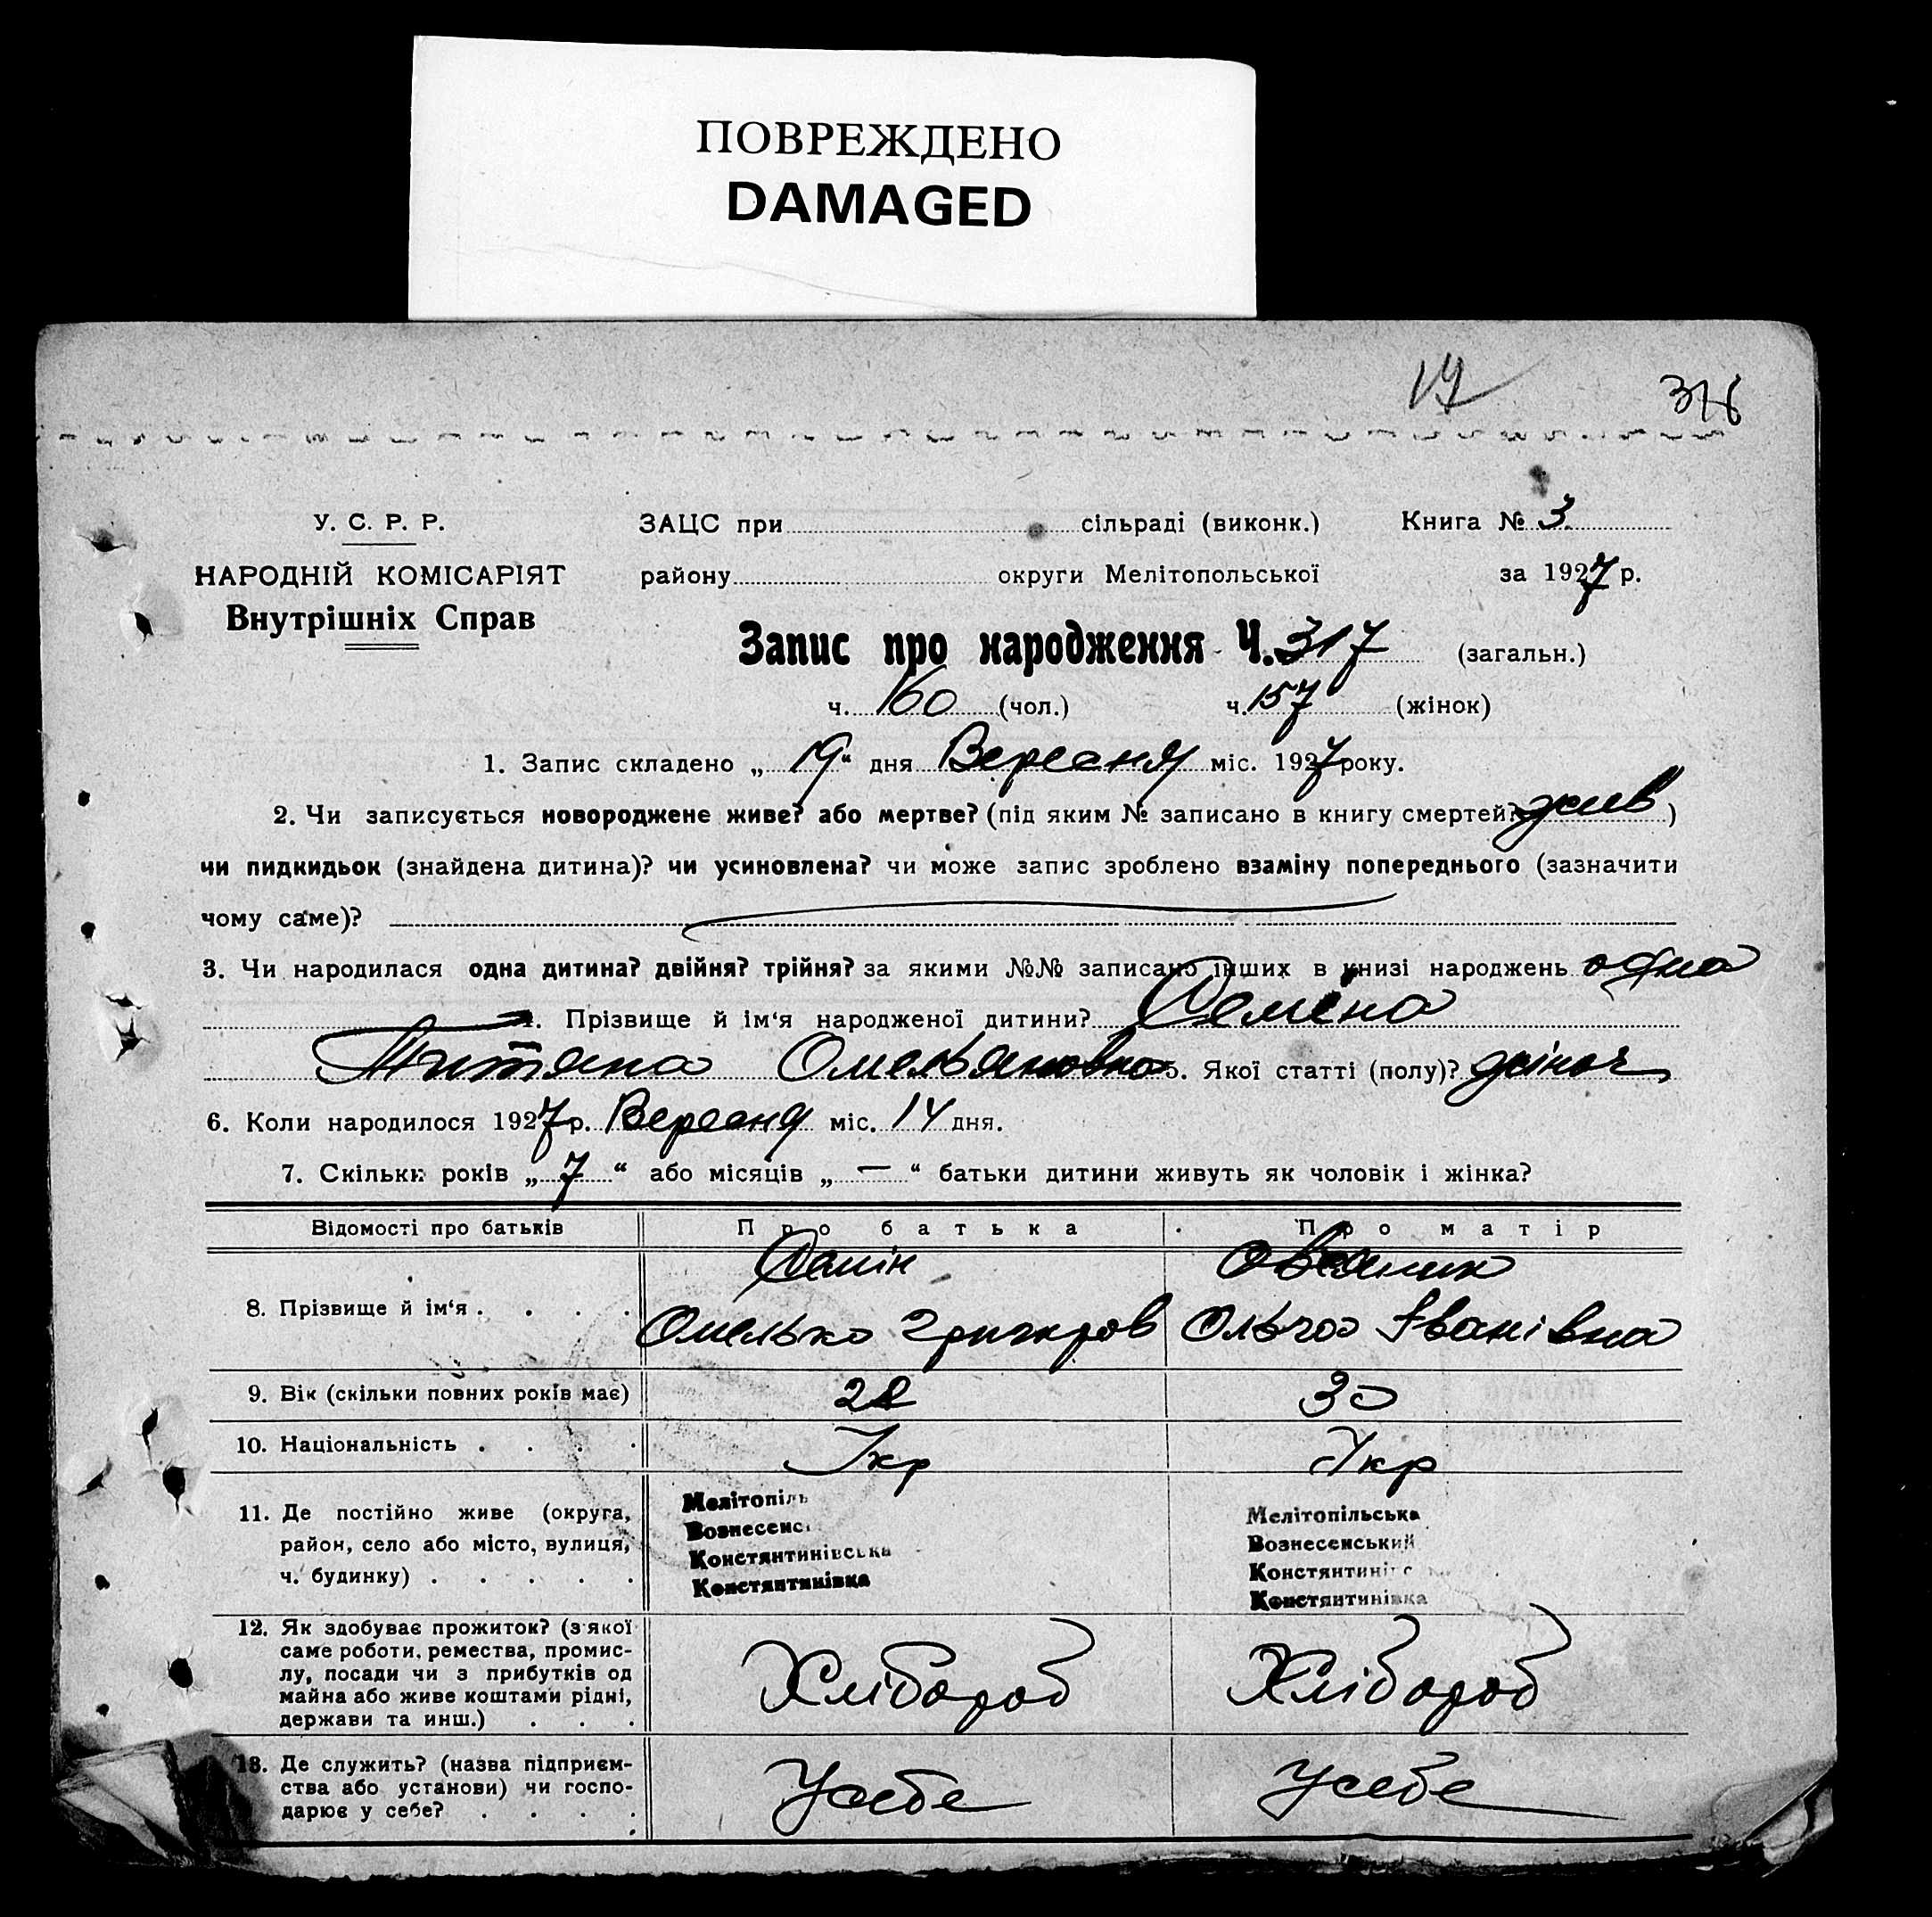 ПОВРЕЖДЕНО
DAMAGED
17
У. С. Р. Р.
НАРОДНІЙ КОМІСАРІЯТ
Внутрішніх Справ
ЗАЦС при сільраді (виконк.) Книга № 3
району округи Мелітопольської за 1927 р.
Запис про народження Ч. 317 (загальн.)
ч. 160 (чол.) ч. 157 (жінок)
1. Запис складено „19“ дня Вересня міс. 1927 року.
2. Чи записується новороджене живе? або мертве? (під яким № записано в книгу смертей? жив)
чи пидкидьок (знайдена дитина)? чи усиновлена? чи може запис зроблено взаміну попереднього (зазначити
чому саме)?
3. Чи народилася одна дитина? двійня? трійня? за якими №№ записано інших в книзі народжень одна
4. Прізвище й ім‘я народженої дитини? Семіна
Титяна Омеляновна 5. Якої статті (полу)? жіноч
6. Коли народилося 1927 р. Вересня міс. 14 дня.
7. Скільки років „7“ або місяців „—“ батьки дитини живуть як чоловік і жінка?
Відомості про батьків Про батька Про матір
8. Прізвище й ім‘я . . . . Семін
Омелько Григоров Ольга Іванівна
9. Вік (скільки повних років має) 28 30
10. Національність . . . . Укр Укр
11. Де постійно живе (округа,
район, село або місто, вулиця,
ч. будинку) . . . . .
Мелітопіль
Вознесенс
Констянтинівська
Констянтинівка
Мелітопільська
Вознесенський
Констянтиніс
Констянтинівка
12. Як здобуває прожиток? (з якої
саме роботи, ремества, промис-
лу, посади чи з прибутків од
майна або живе коштами рідні,
держави та инш.) . . .
Хлібороб Хлібороб
13. Де служить? (назва підприєм-
ства або установи) чи госпо-
дарює у себе? . . . .
Усебе Усебе